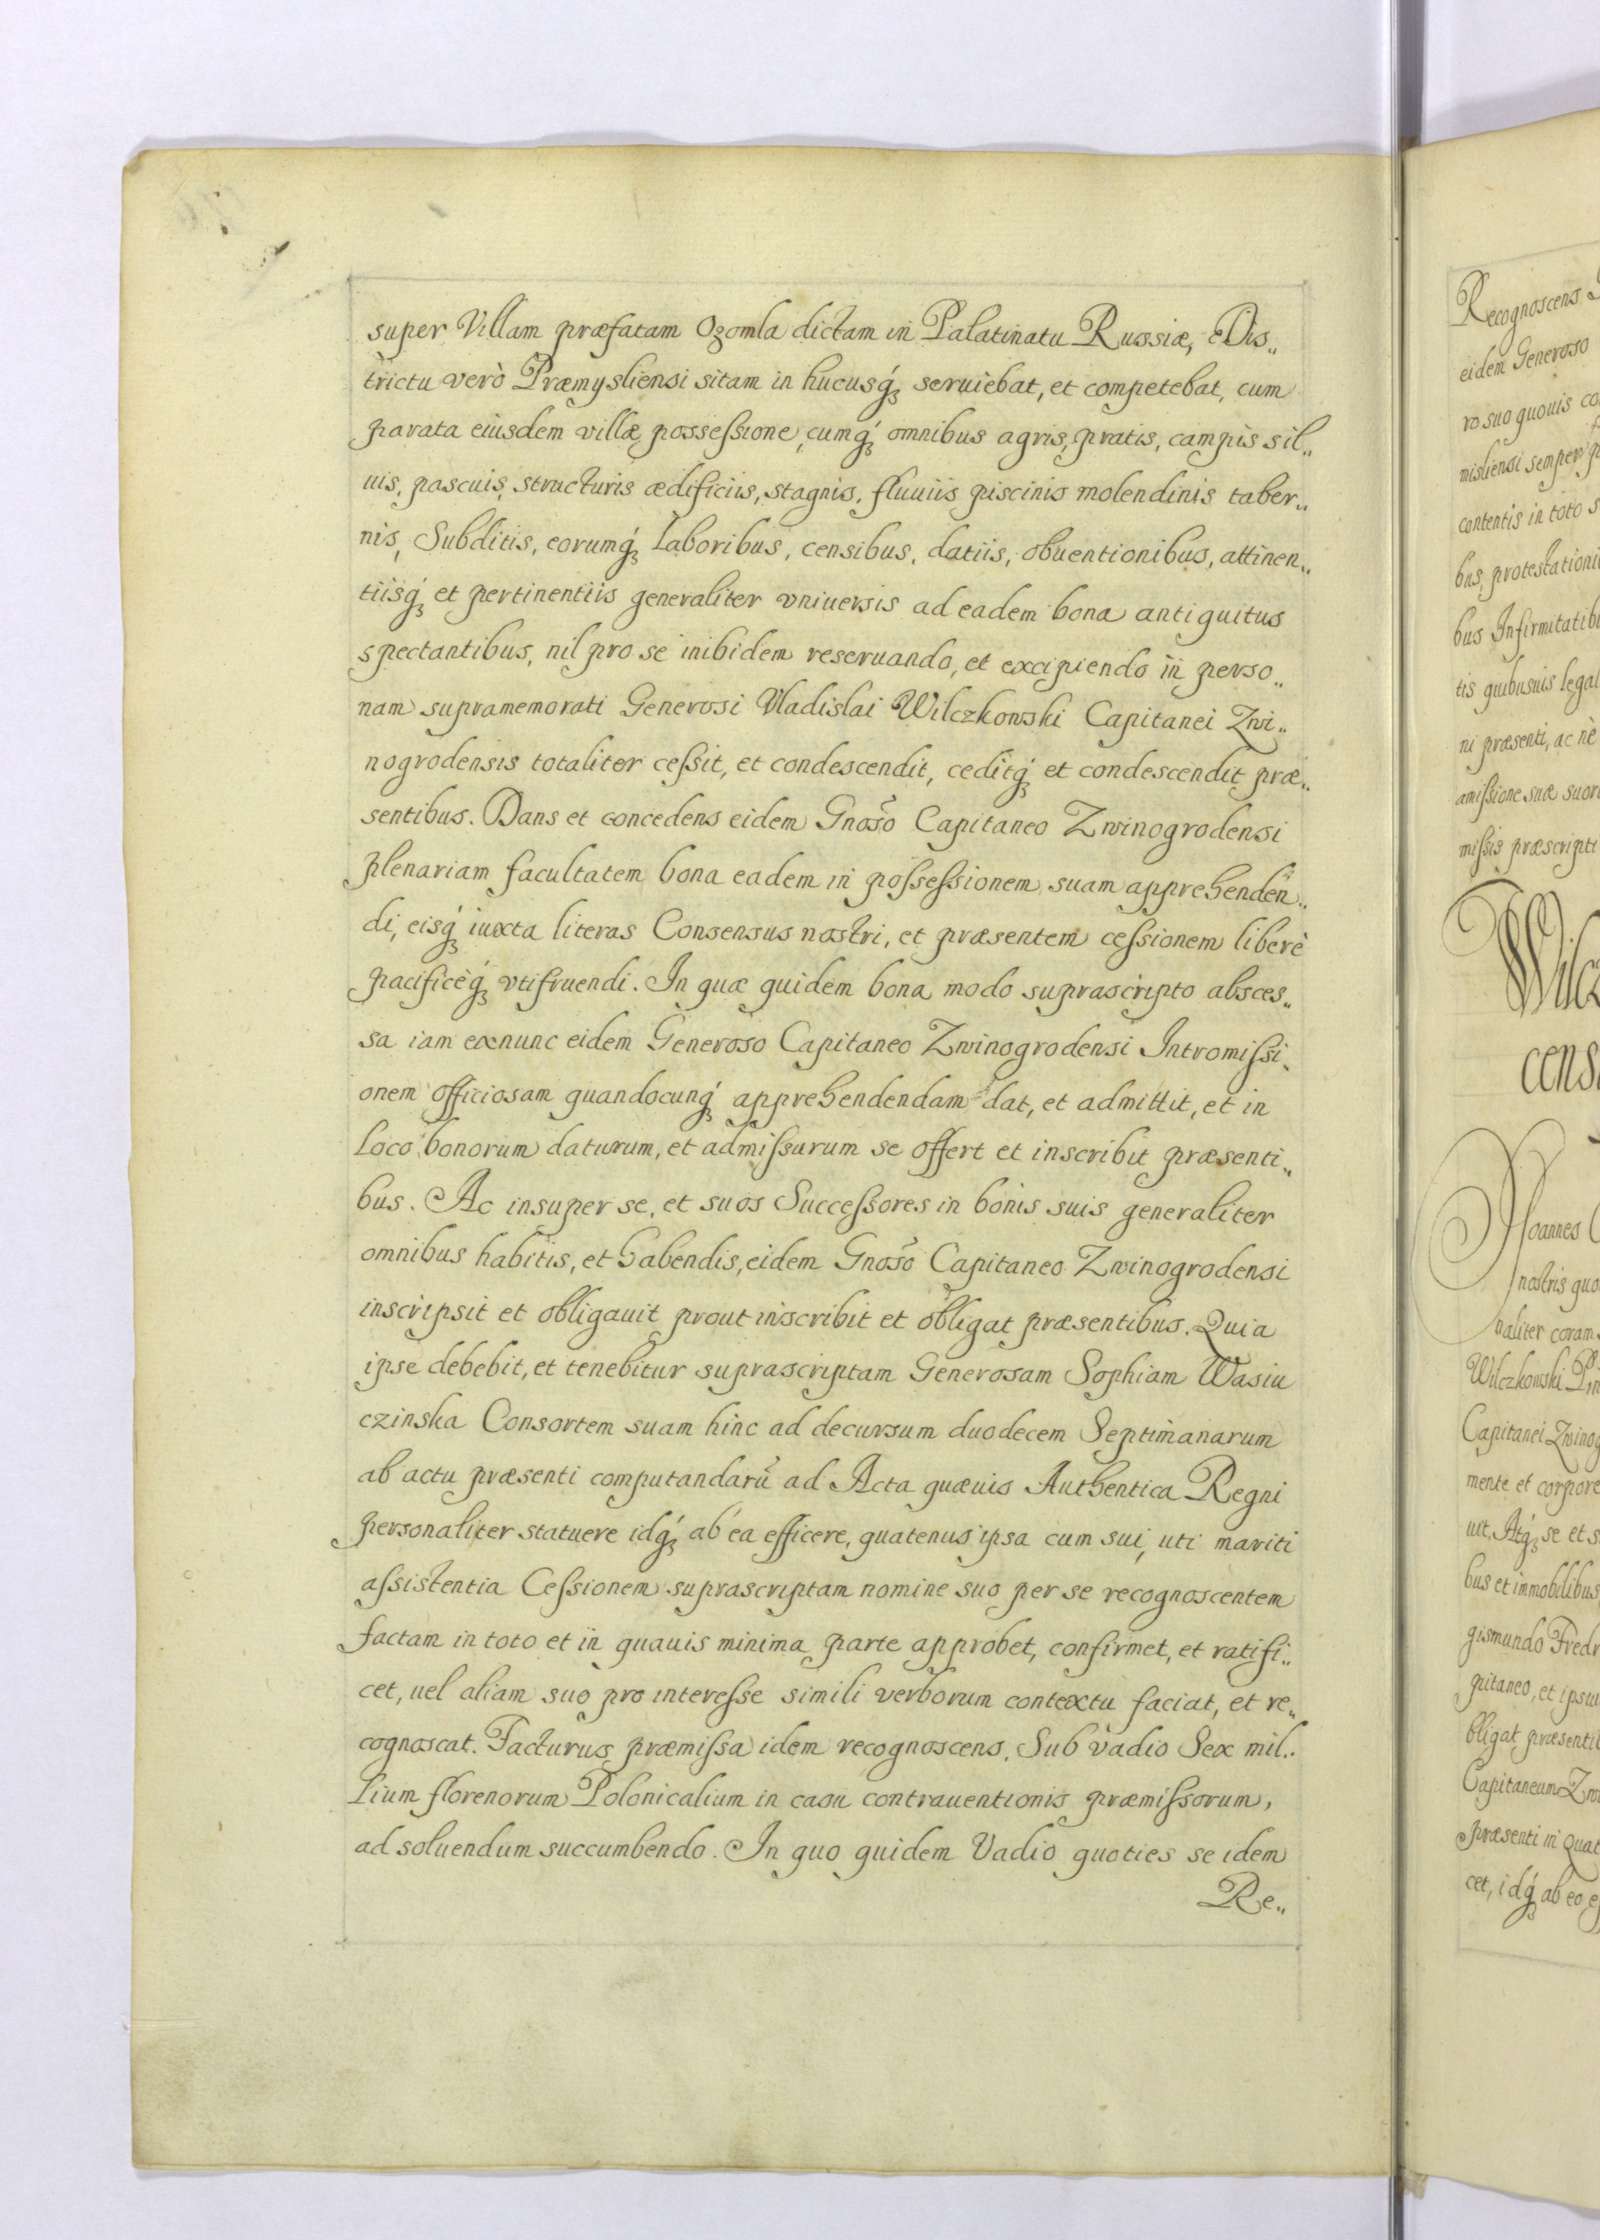 super Villam præfatam Ozomla dictam in Palatinatu Russiæ, Dis„
trictu verò Præmysliensi sitam in hucusq́ꝫ seruiebat, et competebat, cum
parata eiusdem villæ possessione, cumq́ꝫ omnibus agris, pratis, campis sil„
uis, pascuis, structuris ædificiis, stagnis, fluuiis piscinis molendinis taber„
nis, Subditis, eorumq́ꝫ Laboribus, censibus, datiis, obuentionibus, attinen„
tiisq́ꝫ et pertinentiis generaliter vniuersis ad eadem bona antiquitus
spectantibus, nil pro se inibidem reseruando, et excipiendo in perso„
nam supramemorati Generosi Vladislai Wilczkowski Capitanei Zwi„
nogrodensis totaliter ceſsit, et condescendit, ceditq́ꝫ et condescendit præ„
sentibus. Dans et concedens eidem Gnoso Capitaneo Zwinogrodensi
plenariam facultatem bona eadem in poſseſsionem suam apprehenden„
di, eisq́ꝫ iuxta literas Consensus nostri, et præsentem ceſsionem liberè
pacificèq́ꝫ vtifruendi. In quæ quidem bona modo suprascripto absces„
sa iam exnunc eidem Generoso Capitaneo Zwinogrodensi Intromiſsi„
onem officiosam quandocunq́ꝫ apprehendendam dat, et admittit, et in
Loco bonorum daturum, et admiſsurum se offert et inscribit præsenti„
bus. Ac insuper se, et suos Succeſsores in bonis suis generaliter
omnibus habitis, et habendis, eidem Gnoso Capitaneo Zwinogrodensi
inscripsit et obligauit prout inscribit et obligat præsentibus. Quia
ipse debebit, et tenebitur suprascriptam Generosam Sophiam Wasiu
czinska Consortem suam hinc ad decursum duodecem Septimanarum
ab actu præsenti computandarū ad Acta quæuis Authentica Regni
personaliter statuere idq́ꝫ ab ea efficere, quatenus ipsa cum sui, uti mariti
aſsistentia Ceſsionem suprascriptam nomine suo per se recognoscentem
factam in toto et in quauis minima parte approbet, confirmet, et ratifi„
cet, uel aliam suo pro intereſse simili verborum contextu faciat, et re„
cognoscat. Facturus præmiſsa idem recognoscens, Sub vadio Sex mil„
lium florenorum Polonicalium in casu contrauentionis præmiſsorum,
ad soluendum succumbendo. In quo quidem Vadio quoties se idem
Re„
Recognoscens
eidem Generoso
ro suo quouis
misliensi semper
contentis in toto
bus, protestationi
bus Infirmitatib
tis quibusuis legal
ni præsenti, ac nè
amiſsione suæ suor
miſsis præscripti
Wilcz
cens
Joannes
nostris quo
naliter coram
Wilczkowski
Capitanei Zwinog
mente et corpore
uit. Atq́ꝫ se et s
bus et immobilibus
gismundo Fredr
pitaneo, et ipsu
bligat præsentib
Capitaneum Zwi
præsenti in quat
cet, idq́ꝫ ab eo